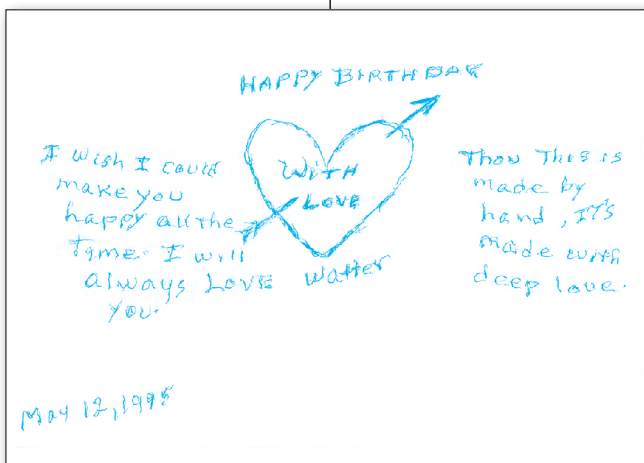 HAPPY BIRTHDAY
WITH
LOVE
I wish I could
make you
happy all the
time. I will
always LOVE
you.
Walter
Thou This is
made by
hand, IT's
made with
deep love.
May 12, 1995